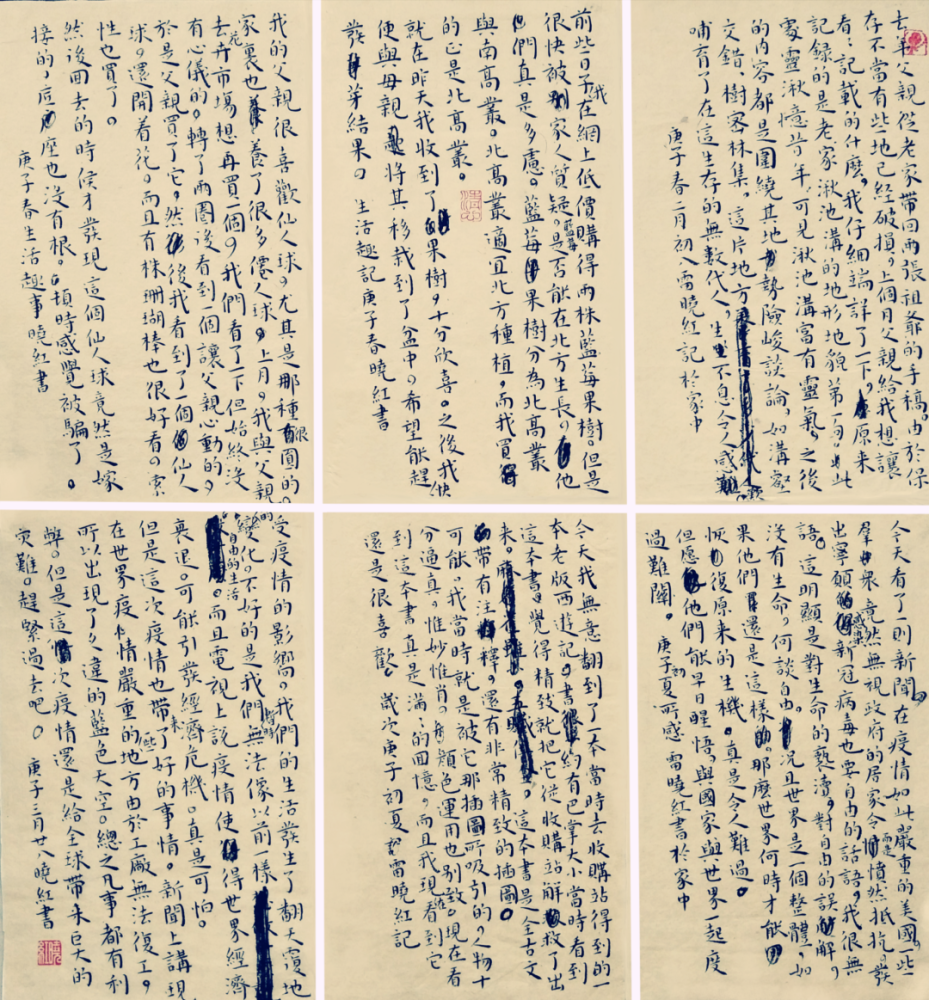 去年父親從老家帶回兩張祖爺的手稿。由於保
存不當有些地已經破損。上個月父親給我想讓
看。記載的什麼。我仔細端詳了一下。原來
記録的是老家湫池溝的地形地貌第一句此
處靈湫憶昔年。可見湫池溝富有靈氣。之後
的内容都是圍繞其地勢險峻談論。如溝壑
交錯、樹密林集。這片地方
哺育了在這生存的無數代人。生生不息令人感
庚子春二月初八雷曉紅記於家中
前些日子我在網上低價購得兩株藍莓果樹。但是
很快被家人質疑。藍莓是否能在北方生長。他
們真是多慮。藍莓果樹分為北高叢
與南高叢。北高叢適宜北方種植。而我買
的正是北高叢。
就在昨天我收到了果樹。十分欣喜。之後我快
便與母親將其移栽到了盆中。希望能趕
發芽結果。
生活趣記庚子春曉紅書
我的父親很喜歡仙人球。尤其是那種很圓的。
家裏也養了很多僊人球。上月。我與父親
去花卉市場想再買一個。我們看了一下但始終沒
有心儀的。轉了兩圈後看到一個讓父親心動的。
於是父親買了它。然後我看到了一個仙人
球。還開着花。而且有株珊瑚棒也很好看。索
性也買了。
然後回去的時候才發現這個仙人球竟然是嫁
接的。底座也沒有根。頓時感覺被騙了。
庚子春生活趣事曉紅書
今天看了一則新聞。在疫情如此嚴重的美國。一些
群衆竟然無視政府的居家令而憤然抵抗。發
出寧願感染新冠病毒也要自由的話語。我很無
語。這明顯是對生命的褻瀆。對自由的誤解。
没有生命。何談自由。况且世界是一個整體。如
果他們還是這樣。那麼世界何時才能
恢復原来的生機。真是令人難過。
但愿他們能早日醒悟。與國家與世界一起度
過難關。
庚子初夏所感雷曉紅書於家中
今天我無意翻到了一本當時去收購站得到的一
本老版西遊記。書約有巴掌大小當時看到
這本書覺得精致就把它從收購站解救了出
来。這本書是全古文
帶有注釋。還有非常精致的插圖。
可能。我當時就是被它那插圖所吸引的。人物十
分逼真。惟妙惟肖。顏色運用也别致。現在看
到這本書真是滿滿的回憶。而且我現在看到它
還是很喜歡。
歲次庚子初夏雷曉紅記
受疫情的影響。我們的生活發生了翻天覆地
變化。不好的是我們無法像以前一樣
自由的生活。而且電視上説疫情使得世界經濟
衰退。可能引發經濟危機。真是可怕。
但是這次疫情也帶来了好的事情。新聞上講現
在世界疫情嚴重的地方由於工廠無法復工。
所以出現了久違的藍色天空。總之凡事都有利
弊。但是這次疫情還是給全球帶来巨大的
灾難。趕緊過去吧。
庚子三月廿八曉紅書